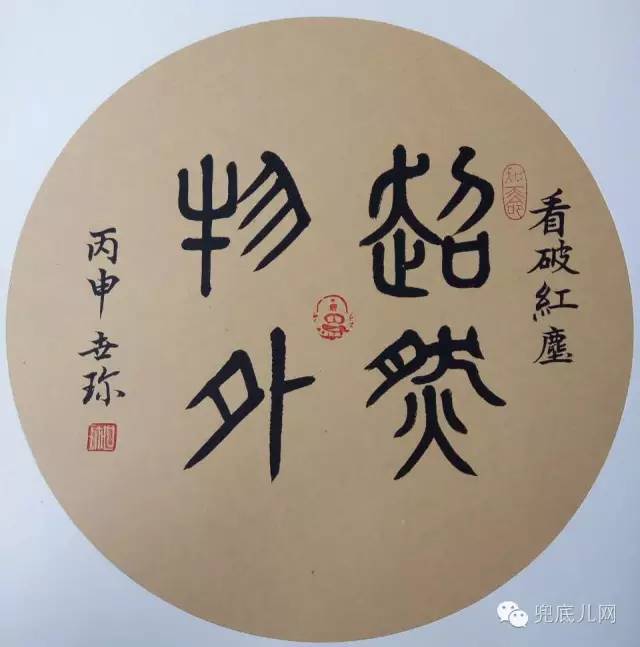 看破紅塵
超然
物外
丙申 世珎
兜底儿网